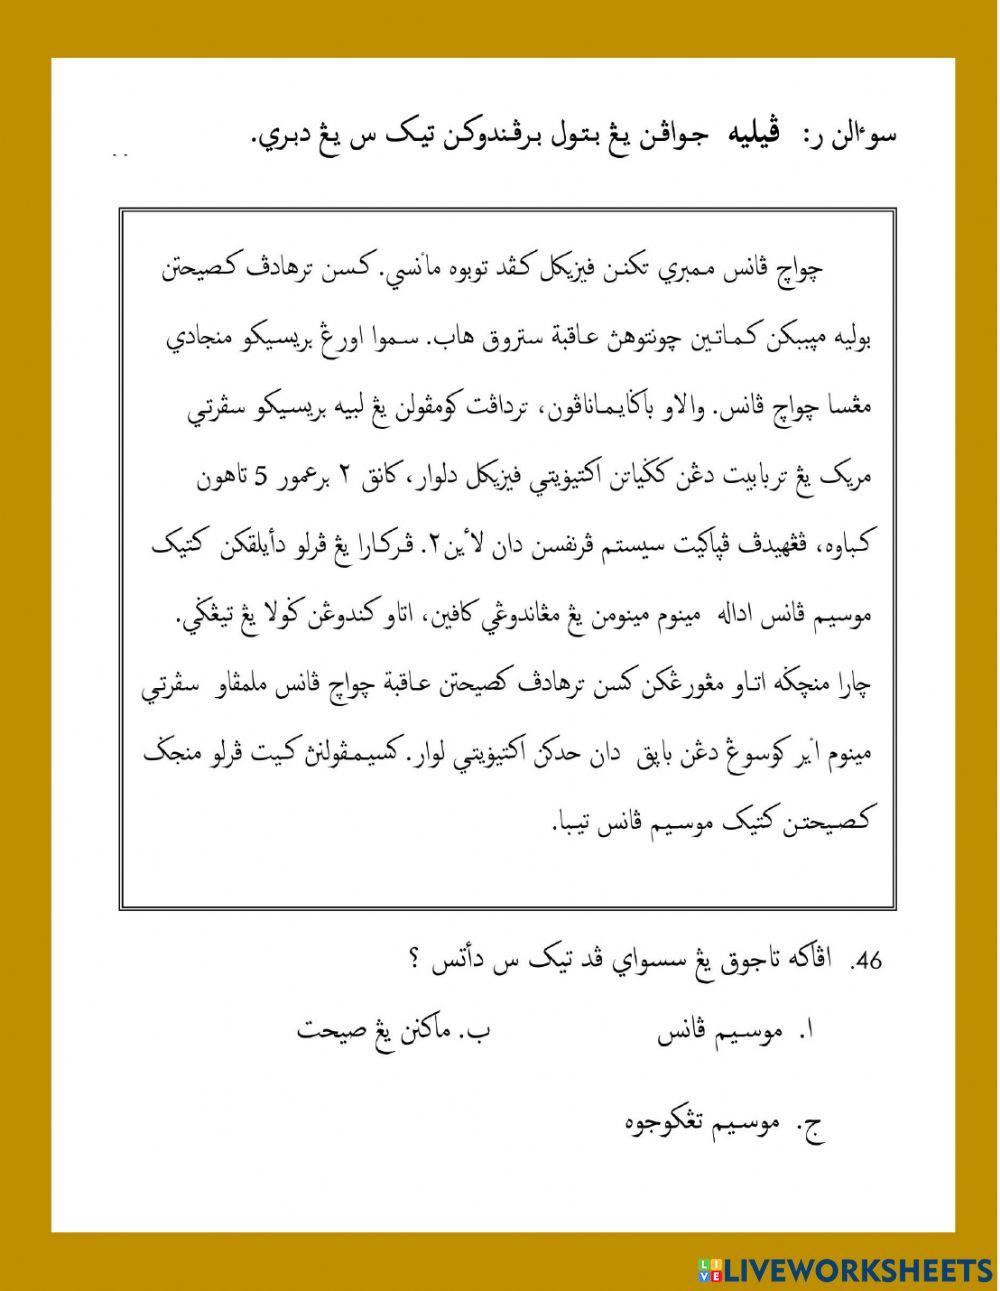 سوءالن ر: ڤيليه جواڤن يڠ بتول برڤندوكن تيک س يڠ دبري.
چواچ ڤانس ممبري تكنن فيزيكل كڤد توبوه ماٴنسي. كسن ترهادڤ كصيحتن
بوليه مپببكن كماتين چونتوهڽ عاقبة ستروق هاب. سموا اورڠ بريسيكو منجادي
مڠسا چواچ ڤانس. والاو باݢايماناڤون، تردافت كومڤولن يڠ لبيه بريسيكو سڤرتي
مريک يڠ تربابيت دڠن كݢياتن اكتيۏيتي فيزيكل دلوار، كانق ٢ برعمور 5 تاهون
كباوه، ڤڠهيدڤ ڤپاكيت سيستم ڤرنفسن دان لاٴين٢. ڤركارا يڠ ڤرلو دأيلقكن كتيک
موسيم ڤانس اداله مينوم مينومن يڠ مڠاندوڠي كافين، اتاو كندوڠن ݢولا يڠ تيڠݢي.
چارا منچݢه اتاو مڠورڠكن كسن ترهادڤ كصيحتن عاقبة چواچ ڤانس ملمڤاو سڤرتي
مينوم اٴير كوسوڠ دڠن باپق دان حدكن اكتيۏيتي لوار. كسيمڤولنڽ كيت ڤرلو منجݢ
كصيحتن كتيک موسيم ڤانس تيبا.
46. اڤاكه تاجوق يڠ سسواي ڤد تيک س دأتس ؟
ا. موسيم ڤانس ب. ماكنن يڠ صيحت
ج. موسيم تڠكوجوه
LIVEWORKSHEETS